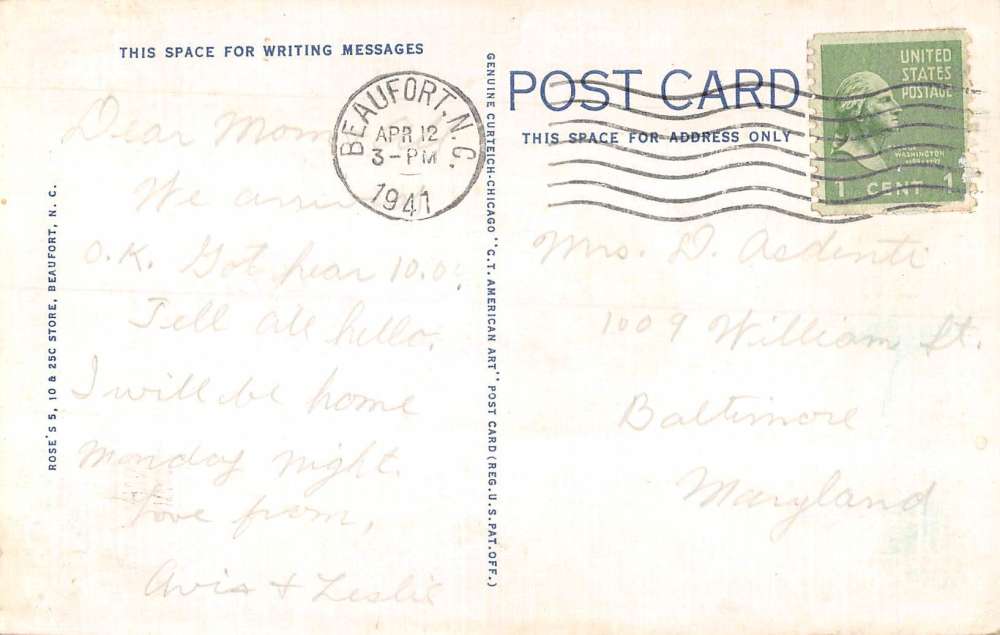 THIS SPACE FOR WRITING MESSAGES
POST CARD
THIS SPACE FOR ADDRESS ONLY
BEAUFORT, N.C.
APR 12
3-PM
1941
UNITED
STATES
POSTAGE
WASHINGTON
1 CENT 1
Dear Mom
We
O.K. Got hear 10.0
Tell all hello.
I will be home
Monday night.
Love from,
Avis + Leslie
Mrs. D.
1009 William St.
Baltimore
Maryland
ROSE'S 5, 10 & 25C STORE, BEAUFORT, N. C.
GENUINE CURTEICH-CHICAGO "C.T. AMERICAN ART" POST CARD (REG. U.S. PAT. OFF.)